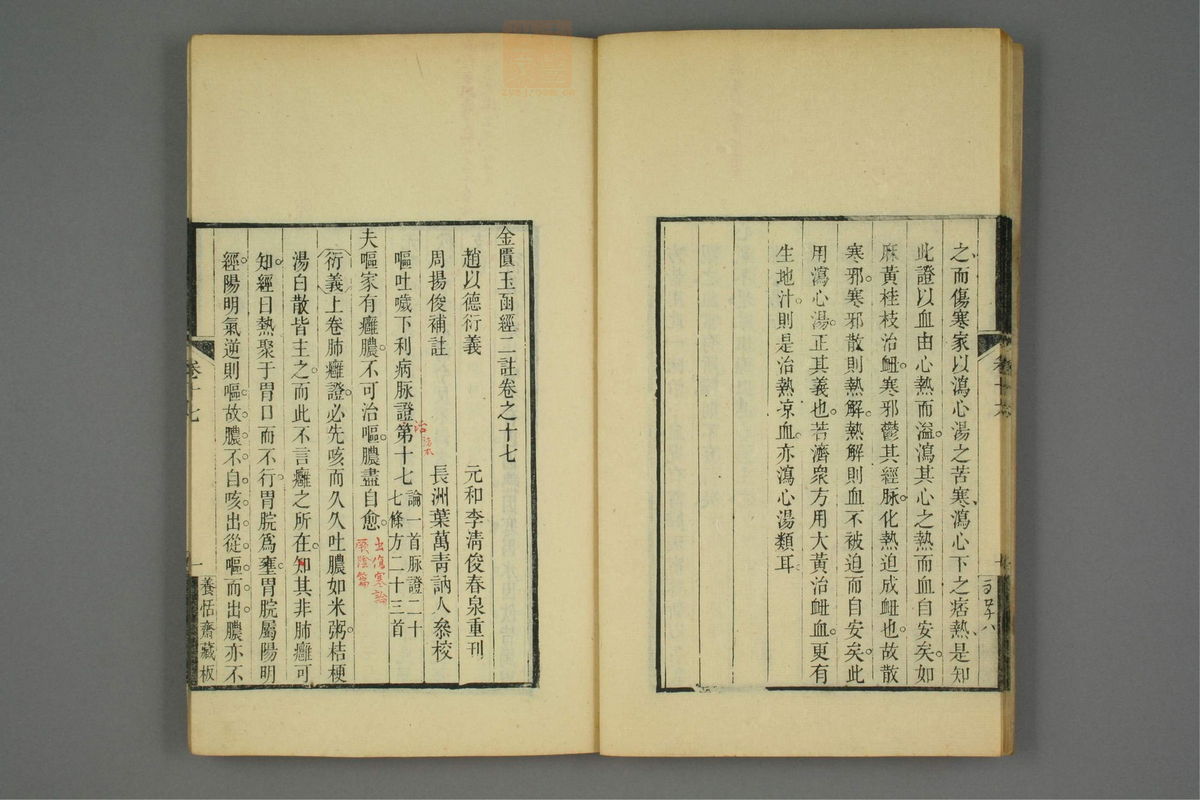 之而傷寒家以瀉心湯之苦寒瀉心下之痞熱是知
此證以血由心熱而溢瀉其心之熱而血自安矣如
麻黃桂枝治衄寒邪鬱其經脉化熱迫成衄也故散
寒邪寒邪散則熱解熱解則血不被迫而自安矣此
用瀉心湯正其義也若濟衆方用大黃治衄血更有
生地汁則是治熱凉血亦瀉心湯類耳
金匱玉函經二註卷之十七
趙以德衍義 元和李清俊春泉重刊
周揚俊補註 長洲葉萬青訥人叅校
嘔吐噦下利病脉證第十七 論一首脉證二十
七條方二十三首
治
夫嘔家有癰膿不可治嘔膿盡自愈
出傷寒論
厥陰篇
衍義上卷肺癰證必先咳而久久吐膿如米粥桔梗
湯白散皆主之而此不言癰之所在知其非肺癰可
知經曰熱聚于胃口而不行胃脘爲壅胃脘屬陽明
經陽明氣逆則嘔故膿不自咳出從嘔而出膿亦不
卷十七
一
養恬齋藏板